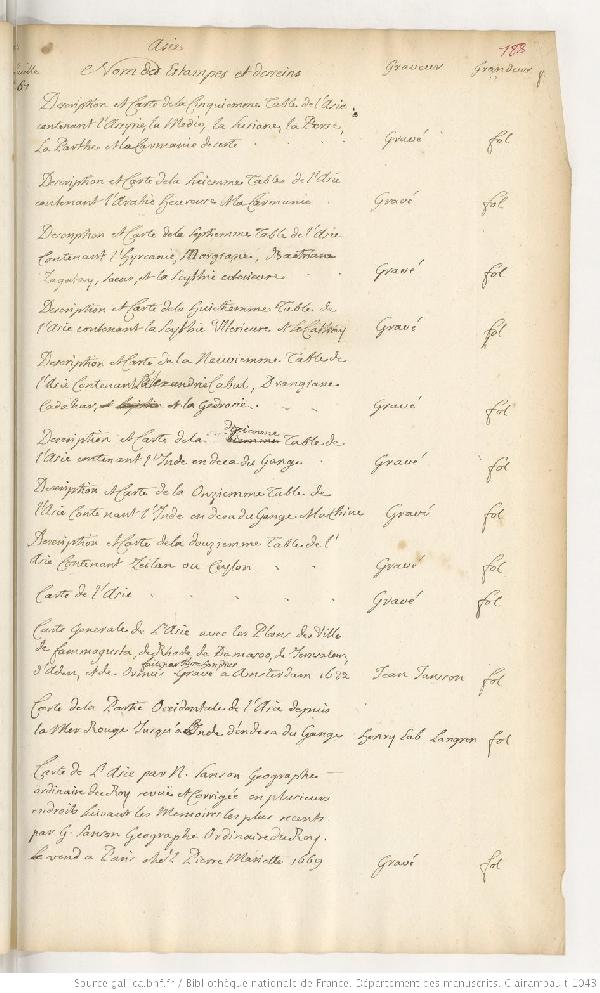 Asie
188
Nom des Estampes et desseins Graveur Grandeur
Description et Carte de la Cinquiemme Table de l'Asie
contenant l'Assyrie, la Medie, la Susiane, la Perse,
La Parthe et la Carmanie deserte Gravé fol
Description et Carte de la Sixiemme Table de l'Asie
contenant l'Arabie heureuse et la Carmanie Gravé fol
Description et Carte de la Septiemme Table de l'Asie
Contenant l'Hyrcanie, Margiane, Bactriane
Sacas, et la Scythie citerieure Gravé fol
Description et Carte de la Huithiemme Table de
l'Asie contenant la Scythie Ulterieure et le Cathay Gravé fol
Description et Carte de la Neuviemme Table de
l'Asie Contenant Alexandrie Cabul, Drangiane
Candahar, et la Gedrosie Gravé fol
Description et Carte de la dixiemme Table de
l'Asie contenant l'Inde en deca du Gange Gravé fol
Description et Carte de la Onziemme Table de
l'Asie Contenant l'Inde en dera du Gange et la Chine Gravé fol
Description et Carte de la douziemme Table de l'
Asie Contenant Zeilan ou Ceylon Gravé fol
Carte de l'Asie Gravé fol
Carte Generale de L'Asie avec les Plans des Ville
de fammagusta, de Rhode, de Damasco, de Jerusalem,
d'Aden, et de Ormus Gravé a Amsterdam 1632 Jean Janson fol
Carte de la Partie Occidentale de l'Asie depuis
la Mer Rouge Jusqu'a l'Inde d'en deca du Gange Henry Lab Langren fol
Carte de L'Asie par N. Sanson Geographe
ordinaire du Roy revüe et Corrigée en plusieurs
endroits suivant les Memoires les plus recents
par G. Sanson Geographe Ordinaire du Roy.
Se vend a Paris chéz Pierre Mariette 1669 Gravé fol
Source gallica.bnf.fr / Bibliothèque nationale de France. Département des manuscrits. Clairambault 1043